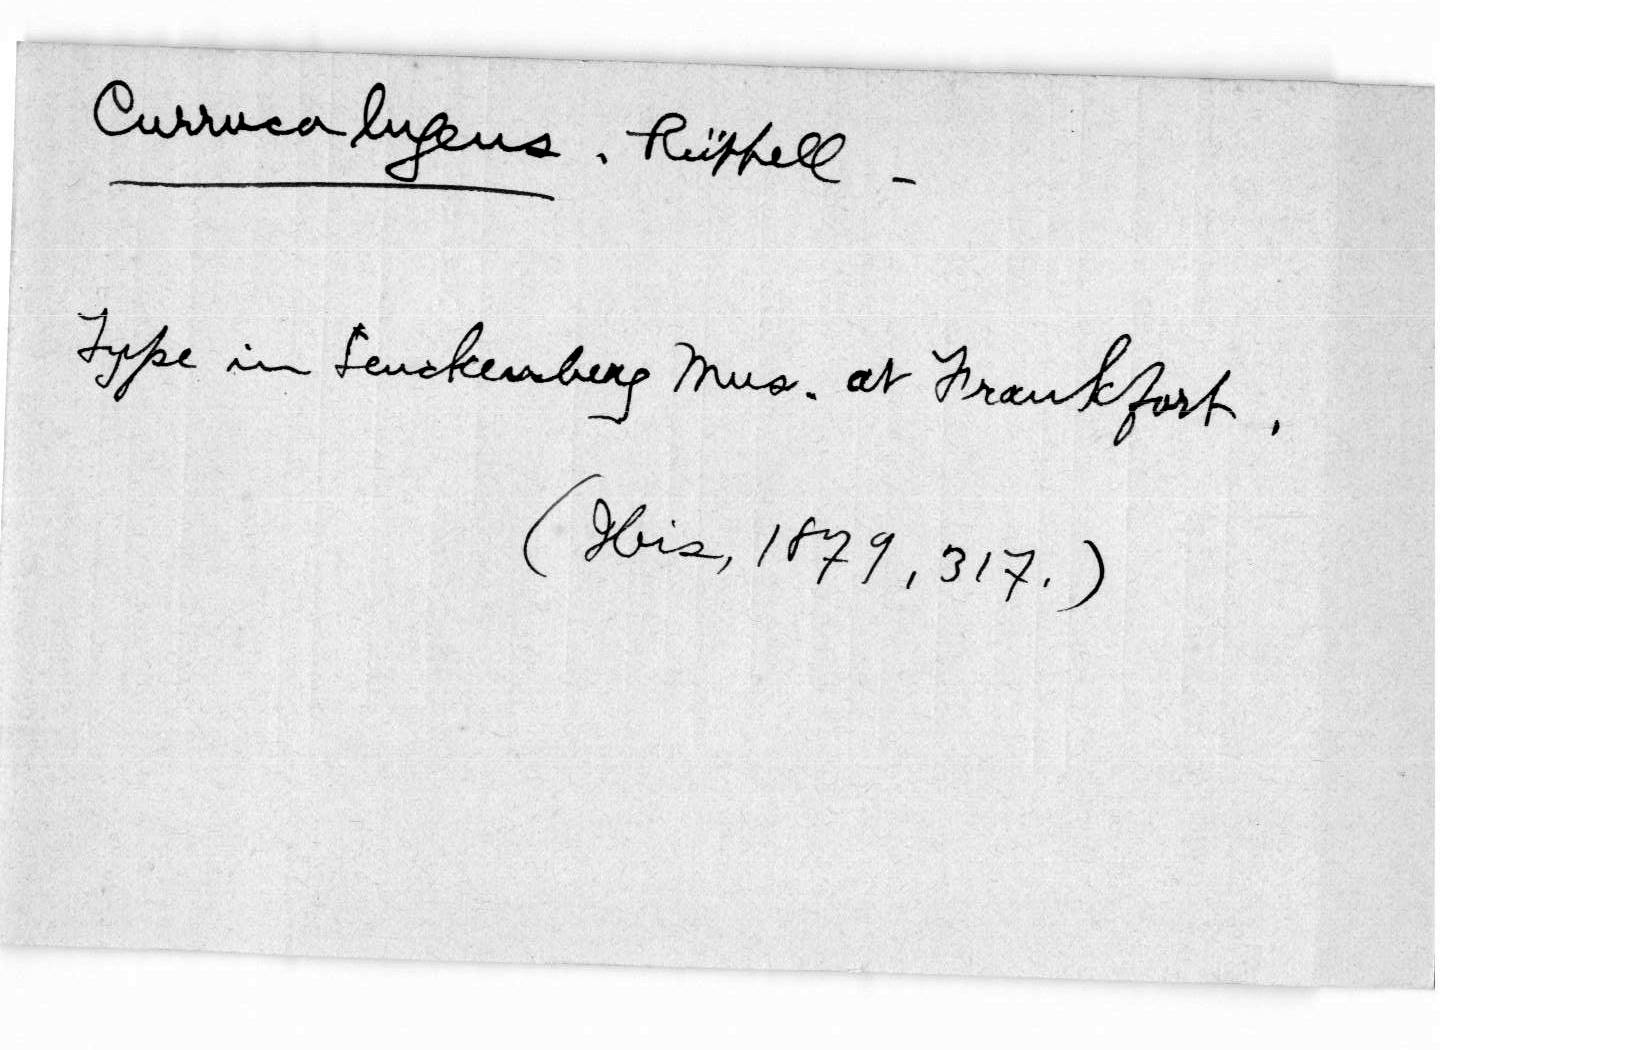 Curruca lugens. Rüppell -
Type in Senckenberg Mus. at Frankfort.
(Ibis, 1879, 317.)